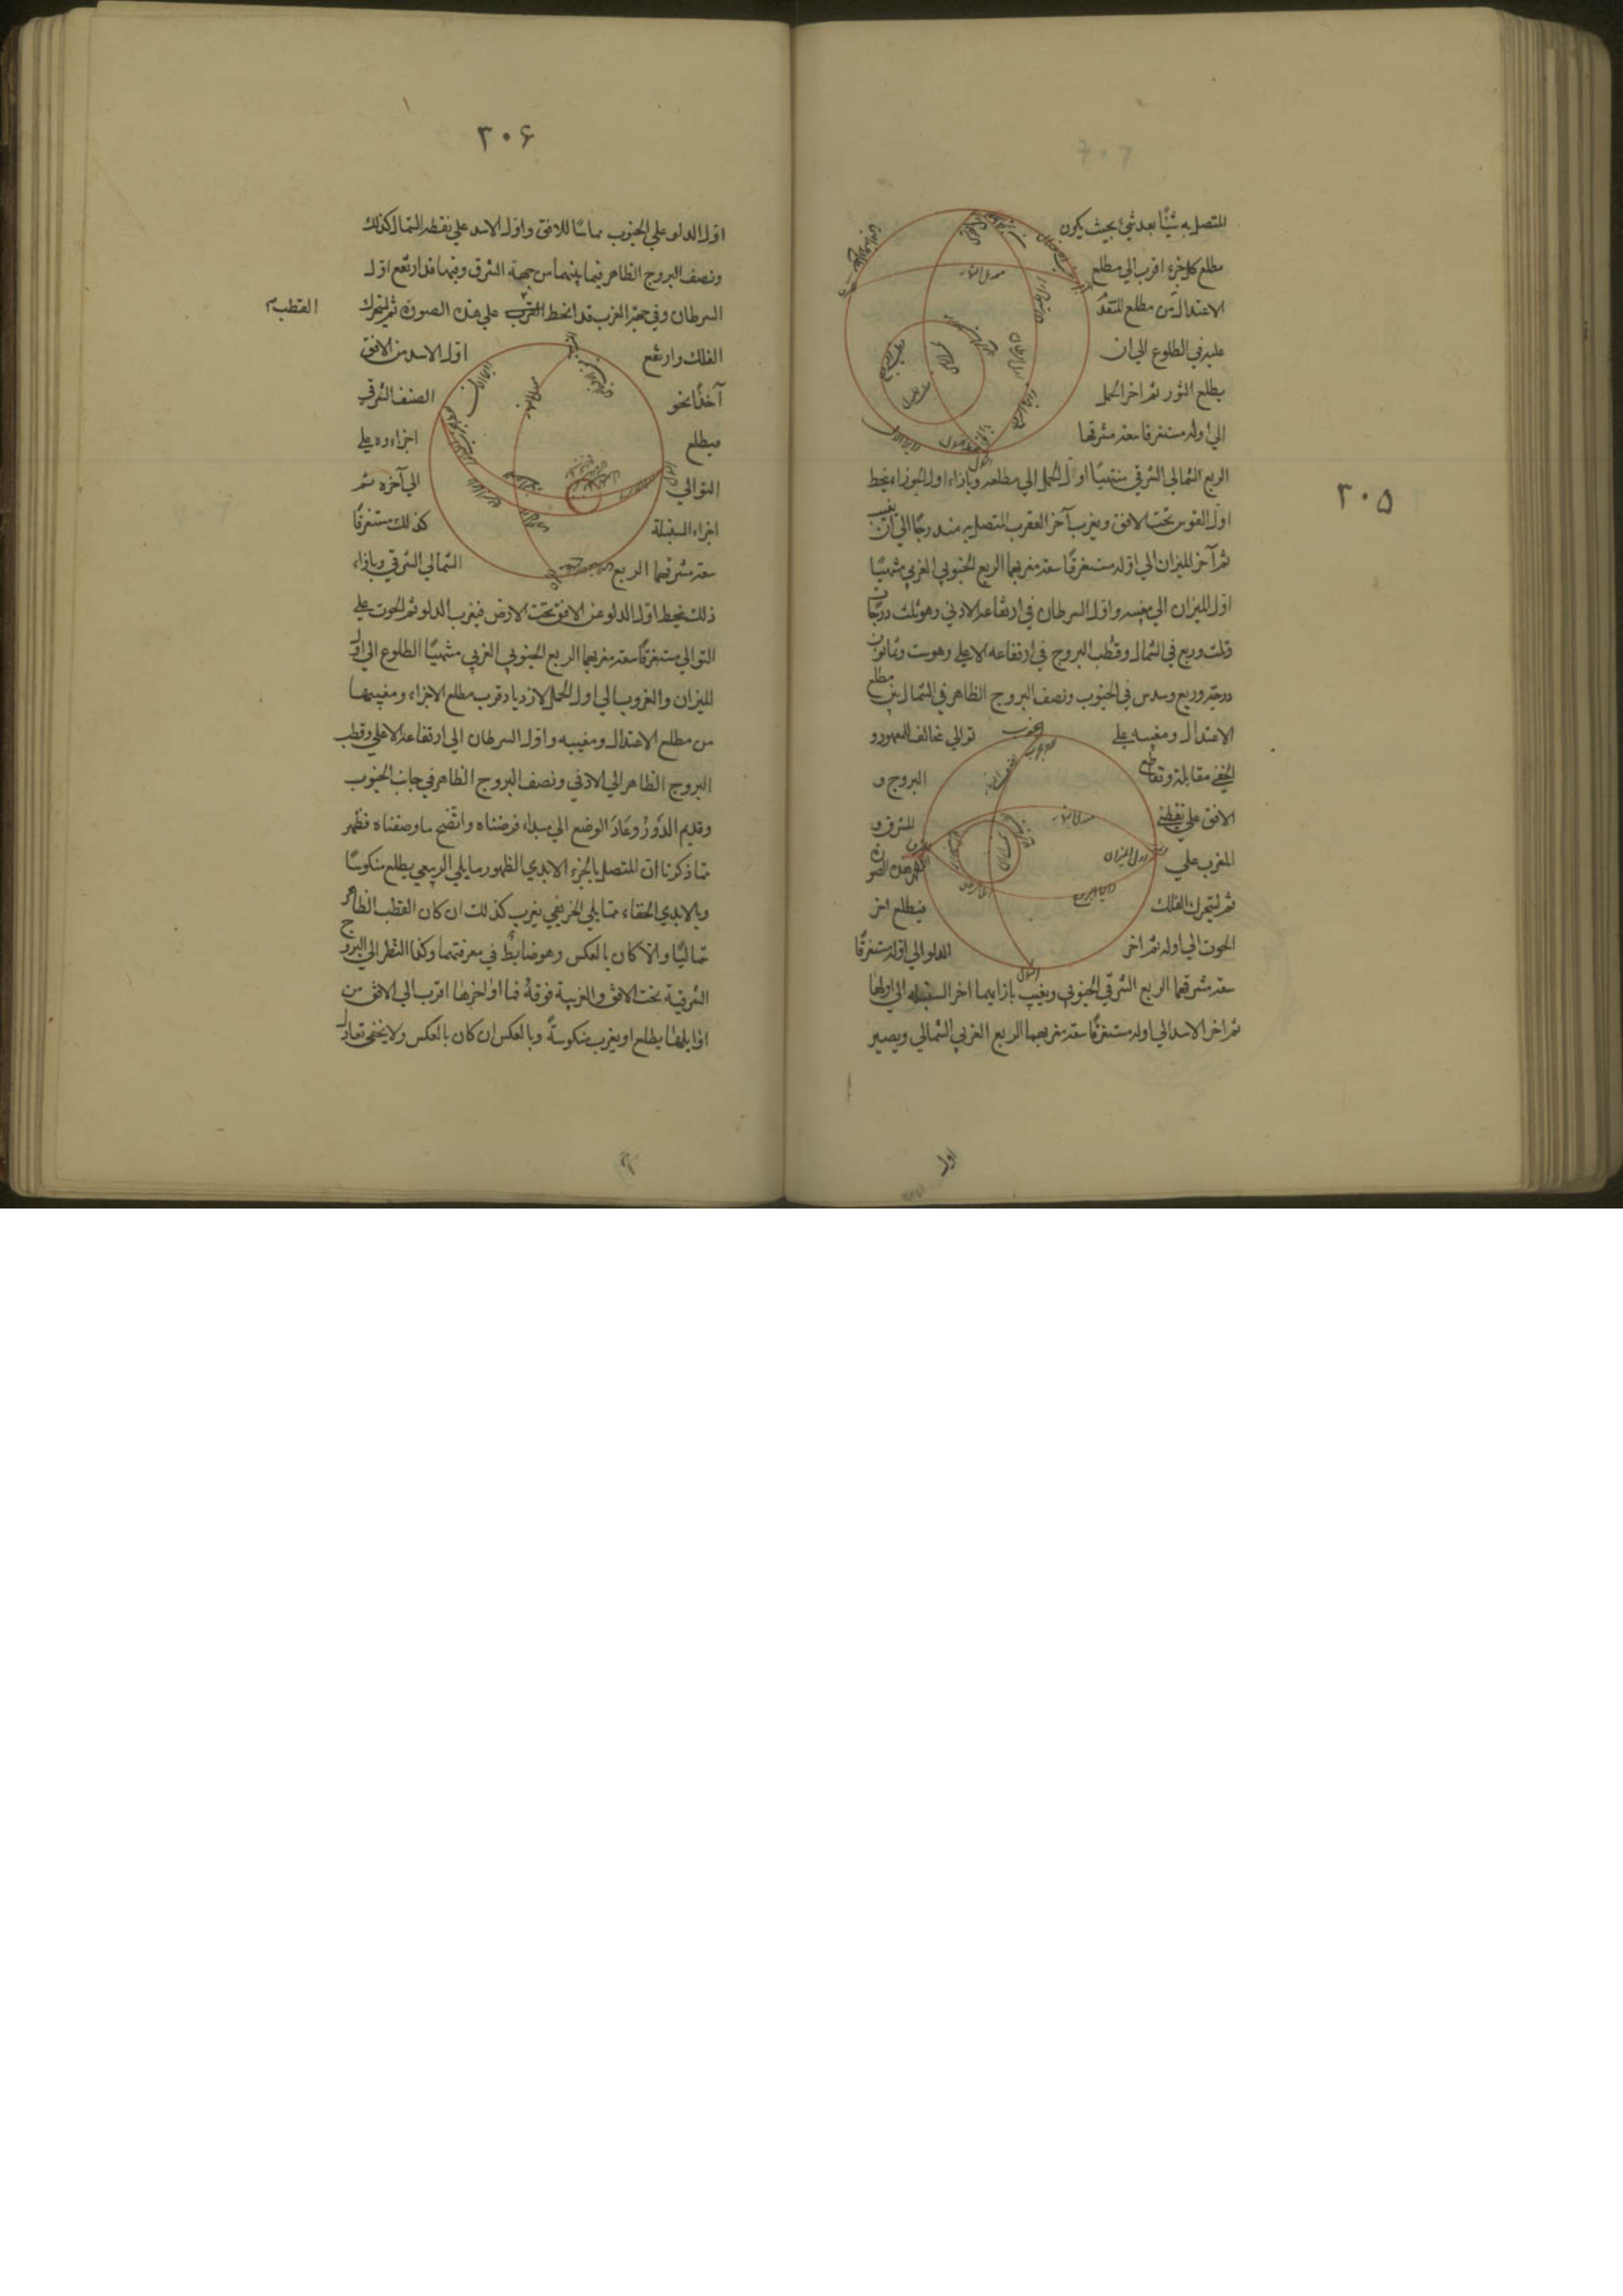 ٣٠٥
المتصل به شيئًا بعد شيئ بحيث يكون
مطلع كل جزء اقرب الي مطلع
الاعتدال من مطلع المتقدم
عليه في الطلوع الي ان
يطلع الثور ثم اخر الحمل
الي اوله مستغرقا سعة مشرقها
الربع الشمالي الشرقي منتهيًا اول الحمل الي مطلعه وبازاء اول الجوزاء ينحط
اول القوس تحت الافق ويغرب آخر العقرب المتصل به مندرجًا الي ان يغيب
ثم آخر الميزان الي اوله مستغرقًا سعة مغربهما الربع الجنوبي الغربي منتهيًا
اول الميزان الي مغيبه واول السرطان في ارتفاعه الادني وهو ثلث درجات
وثلث وربع في الشمال وقطب البروج في ارتفاعه الاعلي وهو ست وثمانون
درجة وربع وسدس في الجنوب ونصف البروج الظاهر في الشمال بين مطلع
الاعتدال ومغيبه علي توالي مخالف للمعهود و
الخفي مقابلة وتقاطع البروج و
الافق علي نقطتي المشرق و
المغرب علي هذه الصورة
ثم ليتحرك الفلك فيطلع اخر
الحوت الي اوله ثم اخر الدلو الي اوله مستغرقًا
سعة مشرقهما الربع الشرقي الجنوبي ويغيب بازايهما اخر السنبلة الي اولها
ثم اخر الاسد الي اوله مستغرقًا سعة مغربهما الربع الغربي الشمالي ويصير
معدل النهار
اول السرطان
الجنوب
معدل النهار
اول الميزان
الشمال
اول
٣٠۶
اول الدلو علي الجنوب مماسًا للافق واول الاسد علي نقطة الشمال كذلك
ونصف البروج الظاهر فيما بينهما من جهة الشرق وفيها قد ارتفع اول
السرطان وفي جهة الغرب قد انحط علي هذه الصورة ثم ليتحرك
القطب
الفلك وارتفع اول الاسد من الافق
آخذًا نحو الصنف الشرقي
فيطلع اجزاءوه علي
التوالي الي آخره ثم
اجزاء السنبلة كذلك مستغرقًا
سعة مشرقهما الربع الشمالي الشرقي وبازاء
ذلك ينحط اول الدلو عن الافق تحت الارض فيغرب الدلو ثم الحوت علي
التوالي مستغرقًا سعة مغربهما الربع الجنوبي الغربي منتهيًا الطلوع الي اول
الميزان والغروب الي اول الحمل لازدياد قرب مطلع الاجزاء ومغيبها
من مطلع الاعتدال ومغيبه واول السرطان الي ارتفاعه الاعلي وقطب
البروج الظاهر الي الادني ونصف البروج الظاهر في جانب الجنوب
وقد تم الدَورُ وعَادَ الوضع الي مبداء فرضناه واتضح ما وصفناه فظهر
مما ذكرنا ان المتصل بالجزء الابدي الظهور مما يلي الربيعي يطلع منكوسًا
وبالابدي الخفاء مما يلي الخريفي يغرب كذلك ان كان القطب الظاهر
شماليًا والا كان بالعكس وهو ضابطٌ في معرفتهما وكذا النظر الي البروج
الشرقية تحت الافق والغربية فوقه فما اواخرها اقرب الي الافق من
اوايلها يطلع او يغرب منكوسةً وبالعكس ان كان بالعكس ولا يخفي تعادل